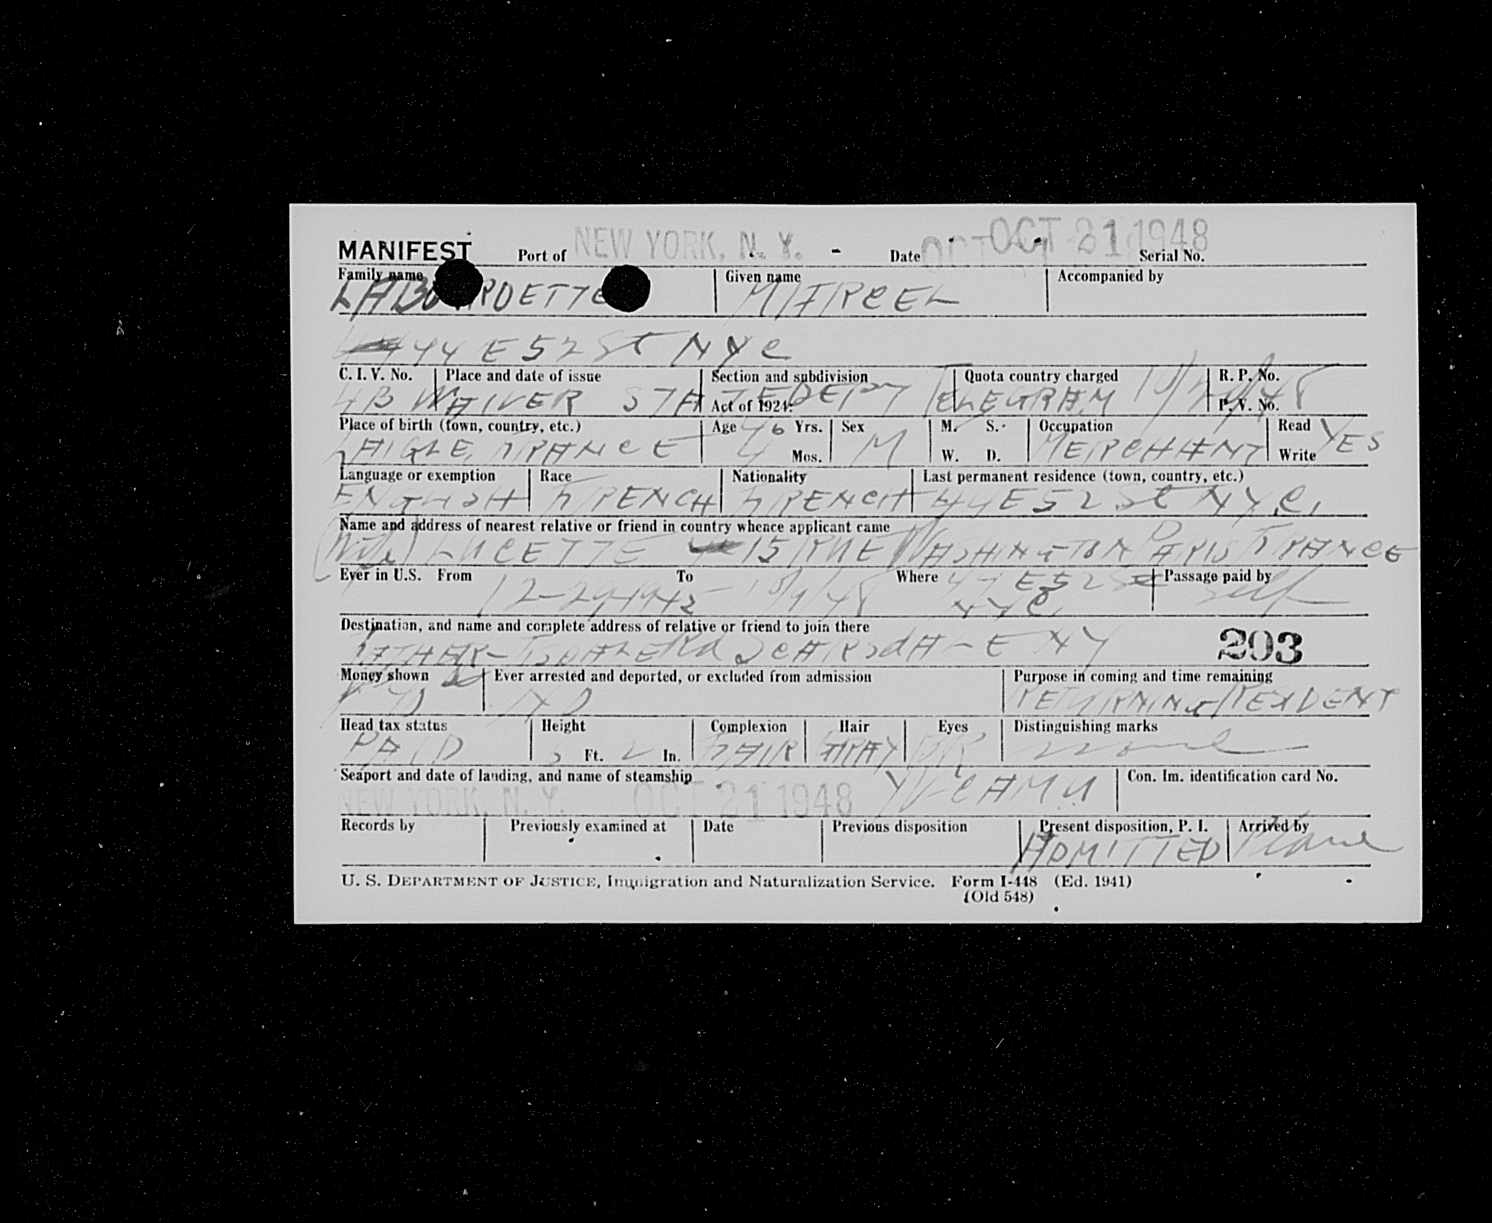 MANIFEST Port of NEW YORK, N. Y. - Date OCT 21 1948 Serial No.
Family name Given name Accompanied by
MARCEL
444 E 52 St NYC
C. I. V. No. Place and date of issue Section and subdivision Quota country charged R. P. No.
4B WAIVER STATE DEPT TELEGRAM
Act of 1924: P. V. No.
Place of birth (town, country, etc.) Age 46 Yrs. Sex M. S. Occupation Read YES
LAIGLE, FRANCE 4 Mos. M W. D. MERCHANT Write
Language or exemption Race Nationality Last permanent residence (town, country, etc.)
ENGLISH FRENCH FRENCH 44 E 52 St NYC,
Name and address of nearest relative or friend in country whence applicant came
(Wife) LUCETTE 15 RUE WASHINGTON PARIS FRANCE
Ever in U.S. From To Where E 52 St Passage paid by
12-29-1945 - 10/9/48 NYC Self
Destination, and name and complete address of relative or friend to join there
Rd SCARSDALE NY 203
Money shown Ever arrested and deported, or excluded from admission Purpose in coming and time remaining
NO RETURNING RESIDENT
Head tax status Height Complexion Hair Eyes Distinguishing marks
PAID Ft. In. FAIR GRAY none
Seaport and date of landing, and name of steamship Con. Im. identification card No.
NEW YORK, N. Y. OCT 21 1948
Records by Previously examined at Date Previous disposition Present disposition, P. I. Arrived by
ADMITTED Plane
U. S. DEPARTMENT OF JUSTICE, Immigration and Naturalization Service. Form I-448 (Ed. 1941)
(Old 548)